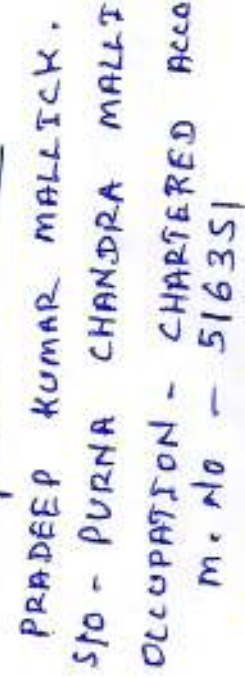 PRADEEP KUMAR MALLICK.
S/O - PURNA CHANDRA MALLI
OCCUPATION - CHARTERED ACCO
M. NO - 516351